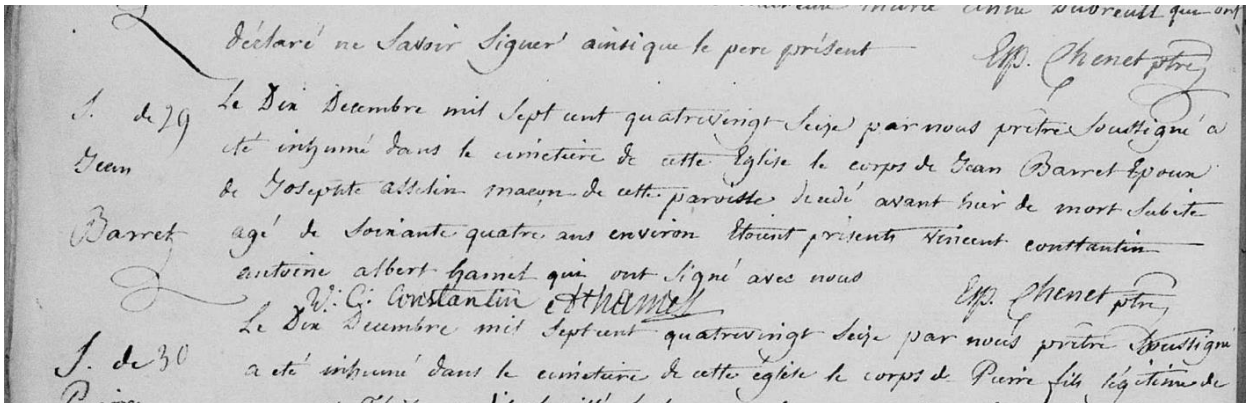 Marie Anne Dubreuil qui ont
déclaré ne Savoir Signer ainsi que le pere présent Exp. Chenet ptre
S. de 29
Jean
Barret
Le Dix Decembre mil Sept cent quatrevingt Seize par nous prêtre Soussigné a
été inhumé dans le cimetiere de cette Eglise le corps de Jean Barret Epoux
de Josephte asselin maçon de cette paroisse decedé avant hier de mort Subite
agé de Soixante quatre ans environ Etoient présents vincent constantin
antoine albert hamel qui ont Signé avec nous
V. C. Constantin Athamel Exp. Chenet ptre
S. de 30
Le Dix Decembre mil Sept cent quatrevingt Seize par nous prêtre Soussigné
a eté inhumé dans le cimetiere de cette eglise le corps de Pierre fils légitime de